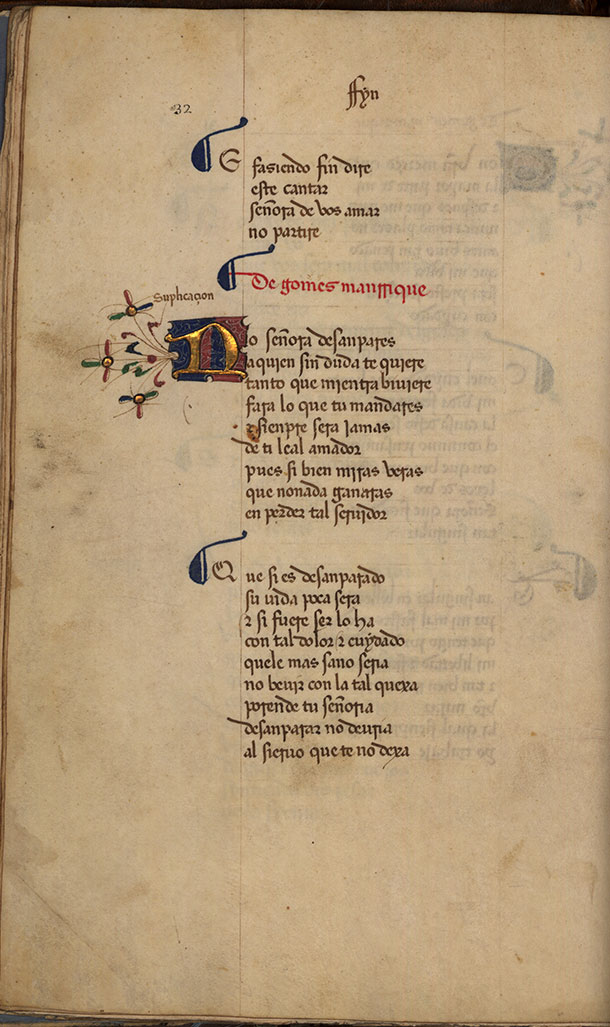 ffyn
32
E fasiendo fin dire
este cantar
señora de vos amar
no partire
De gomes manrrique
Suplicaçion
No señora desanpares
a quien sin duda te quiere
tanto que mientra biviere
fara lo que tu mandares
⁊ sienpre sera iamas
de ti leal amador
pues si bien miras veras
que nonada ganaras
en perder tal seruidor
Que si es desanparado
su vida poca sera
⁊ si fuere ser lo ha
con tal dolor ⁊ cuydado
quele mas sano seria
no beuir con la tal quexa
porende tu señoria
desanparar no deuria
al sieruo que te no dexa